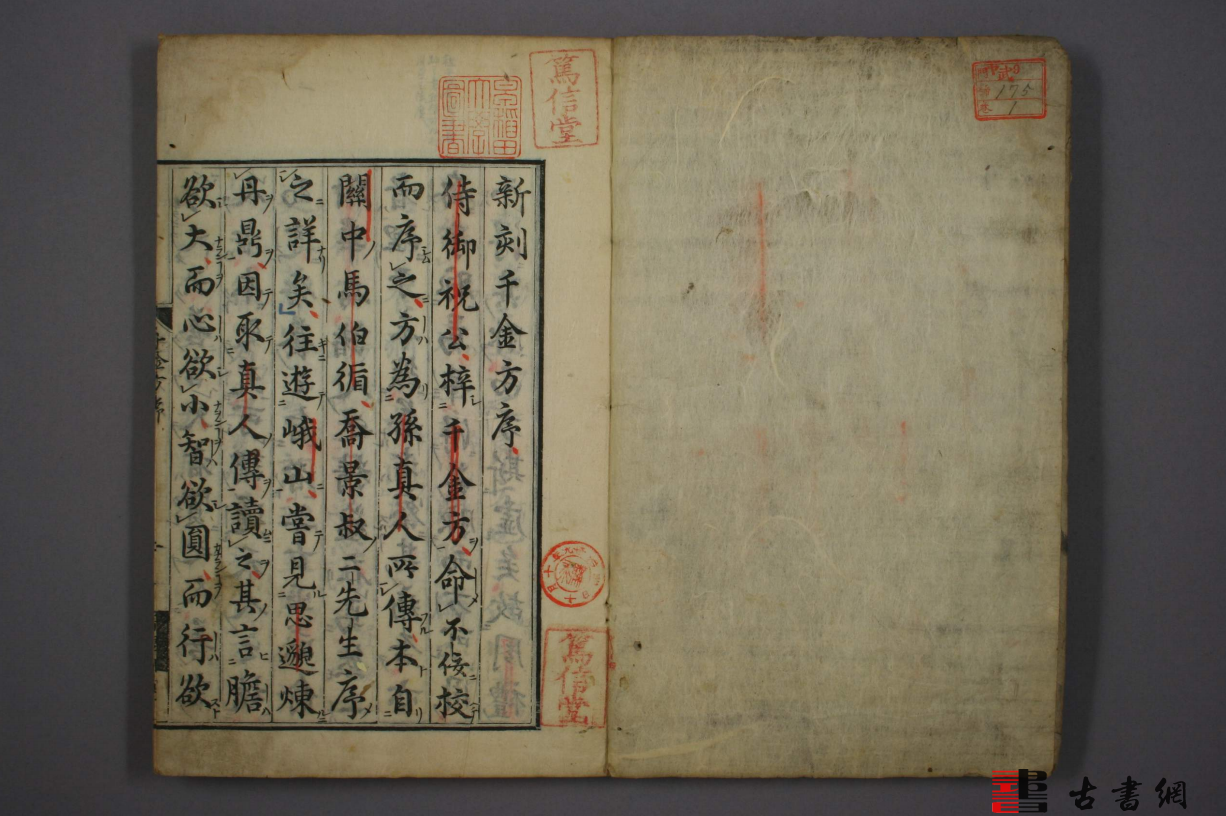 175
1
新刻千金方序
侍御祝公梓千金方命不佞校
而序之方為孫真人所傳本自
關中馬伯循喬景叔二先生序
之詳矣往遊峨山嘗見思邈煉
丹鼎因取真人傳讀之其言膽
欲大而心欲小智欲圓而行欲
千金方序
篤信堂
早稻田大學圖書
篤信堂
古書網